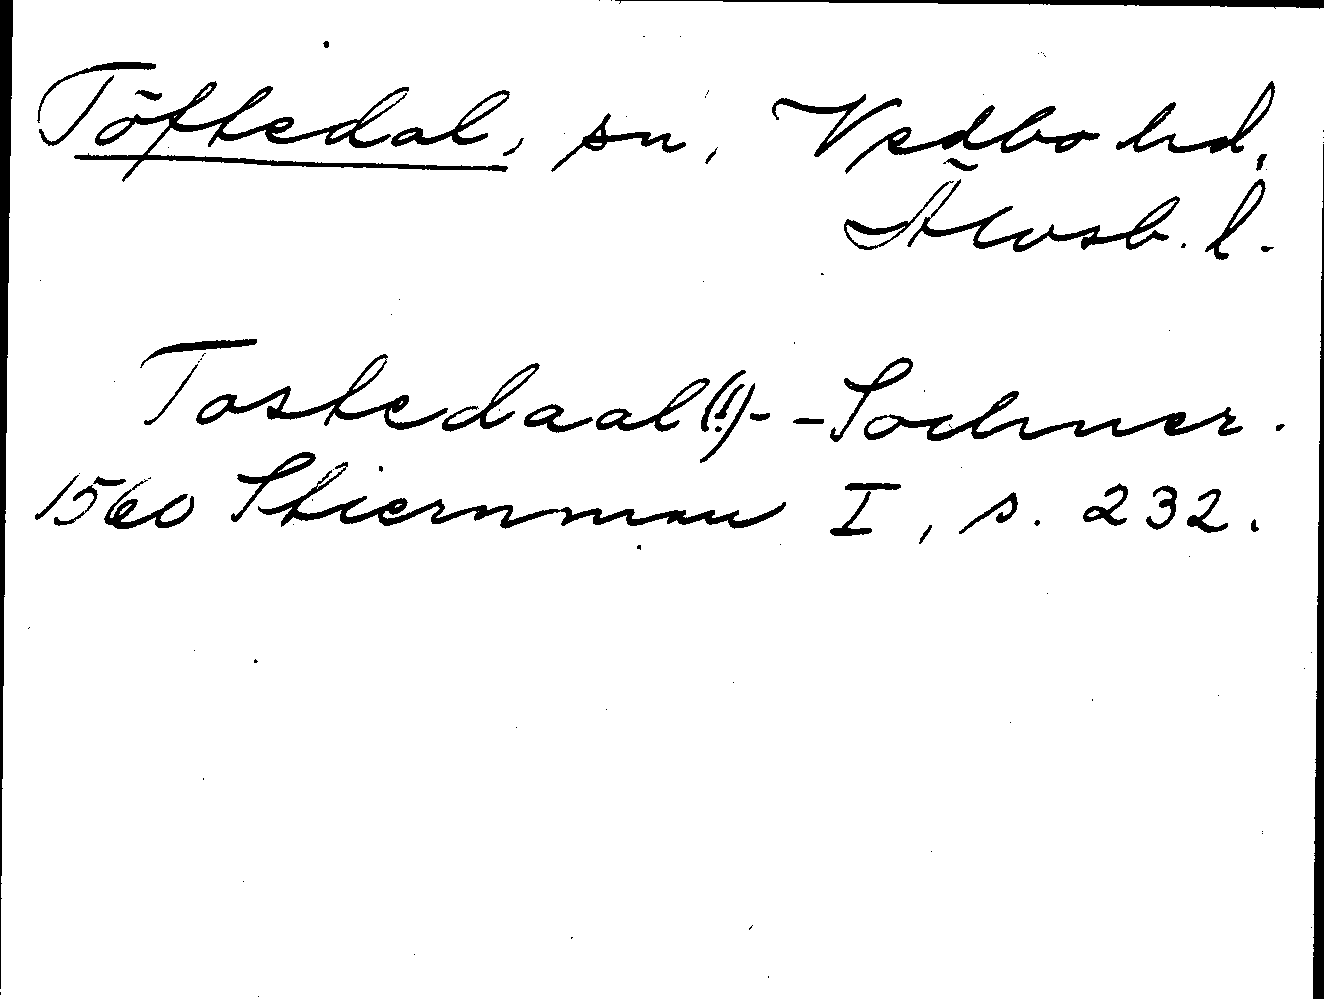 Töftedal, sn, Vedbo hd,
Älvsb. l.
Tostedaal(!)- -Sochner.
1560 Stiernman I, s. 232.